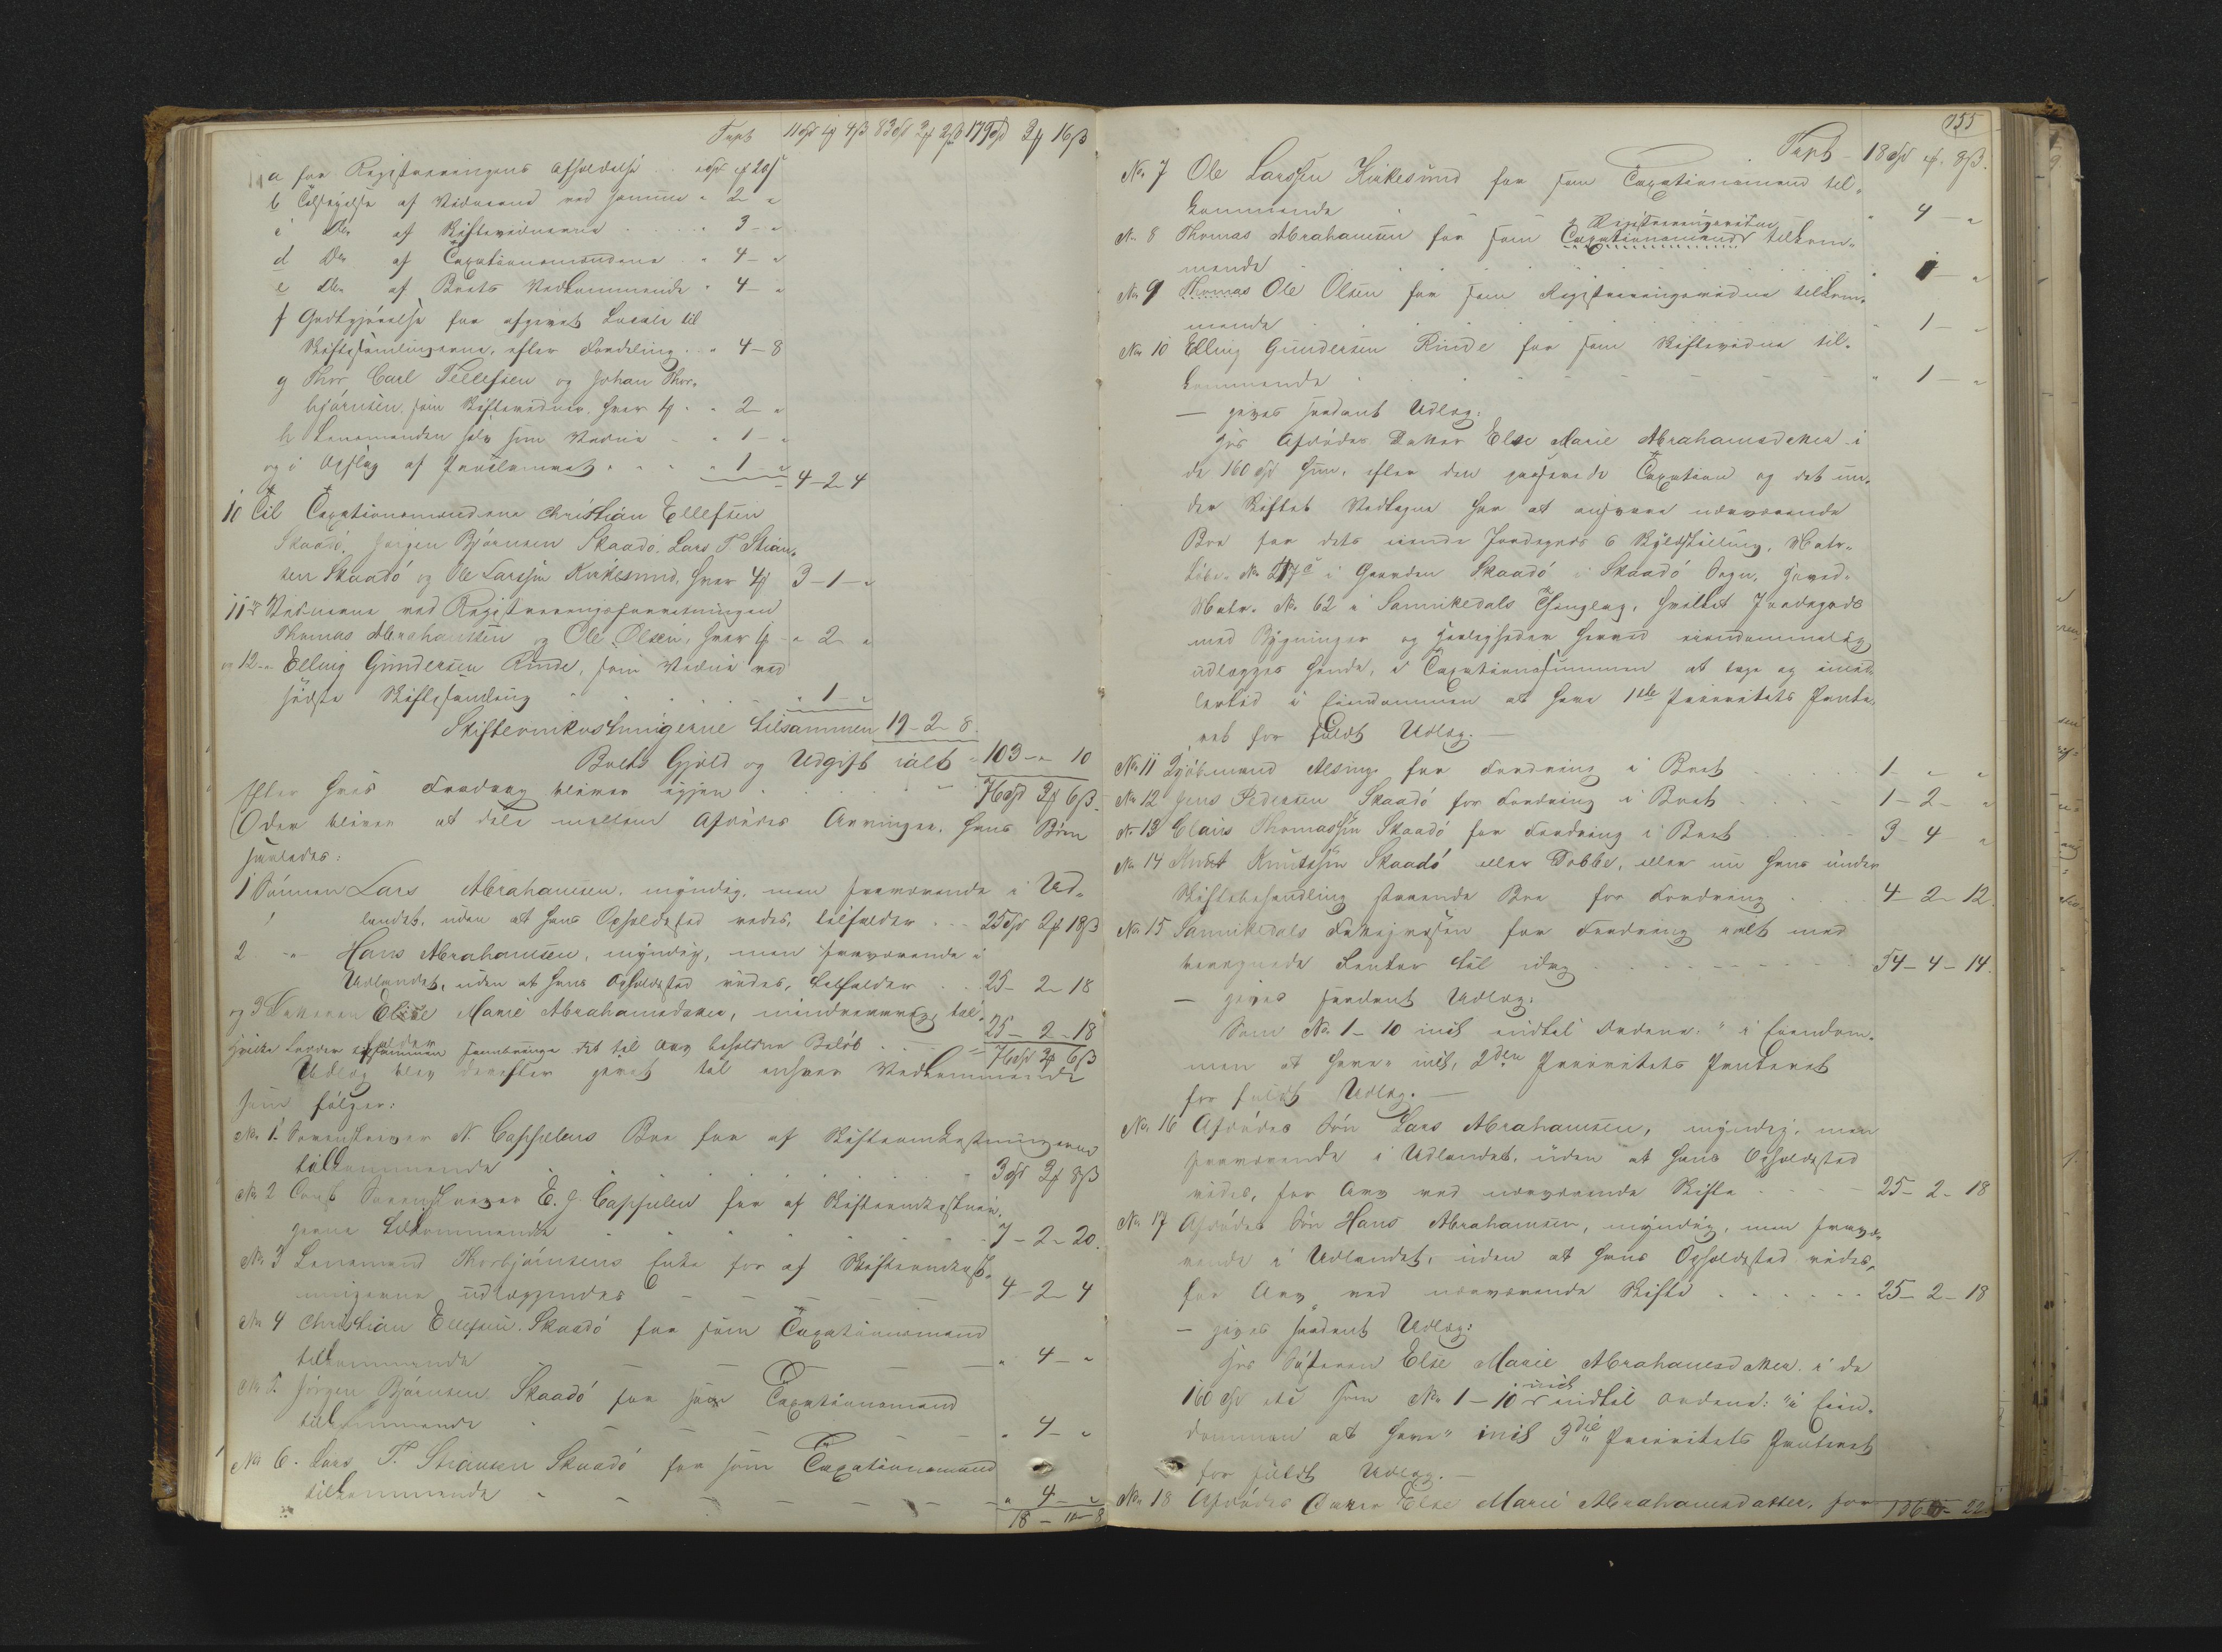 Tspt 11 Spd 4 ß 83 Spd 2 179 Spd 3 16 ß
a for Registreringens Afholdelse 20 ß
b Tilsigelse af Vidnerne ved samme " 2 "
c Do af Skiftevidnerne " 3 - "
d Do af Taxationsmændene " 4 - "
e Do af Boets Vedkommende " 4 - "
f Godtgjørelse for afgivet Locale til
Skiftesamlingerne, efter Fordeling " 4 - 8
g Thor Carl Tellefsen og Johan Thor-
bjørnsen som Skiftevidner, hver " 2 - "
h Lensmanden selv som Vidne " 1 - "
og i Opslag af Proclamaet " 1 - " 4 - 2 - 4
10 Til Taxationsmændene Christian Ellefsen
Skaadö, Jørgen Bjørnsen Skaadö, Lars T. Stian-
sen Skaadö og Ole Larssen Kirkesund, hver 4 3 - 1 - "
11 Vidnerne ved Registreringsforretningen
Thomas Abrahamsen og Ole Olsen, hver " 2 "
og 12 Elling Gundersen Rinde, som Vidne ved
sidste Skiftesamling " 1 - "
Skifteomkostningerne tilsammen 19 - 2 - 8
Boets Gjæld og Udgift ialt 103 - " - 10
Efter hvis Fradrag bliver igjen 76 Spd 3 6 ß
der bliver at dele mellem Afdødes Arvinger, hans Børn
saaledes:
1 Sønnen Lars Abrahamsen, myndig, men fraværende i Ud-
landet, uden at hans Opholdssted vides, tilfalder 25 Spd 2 18 ß
2 " Hans Abrahamsen, myndig, men fraværende i
Udlandet, uden at hans Opholdssted vides, tilfalder 25 - 2 - 18
og 3 Datteren Else Marie Abrahamsdatter, mindreaarig, til-
falder 25 - 2 - 18
hvilke Lodder tilsammen frembringe det til Arv beholdne Beløb 76 Spd 3 6 ß
Udlæg blev derefter givet til enhver Vedkommende
som følger:
No 1. Sorenskriver N. Cappelens Bo for af Skifteomkostningerne
tilkommende 3 Spd 3 8 ß
No 2 Const. Sorenskriver E. J. Cappelen for af Skifteomkostnin-
gerne tilkommende 7 - 2 - 20.
No 3 Lensmand Thorbjørnsens Enke for af Skifteomkost-
ningerne udlæggendes 4 - 2 - 4
No 4 Christian Ellefsen Skaadö for som Taxationsmand
tilkommende " 4 - "
No 5. Jørgen Bjørnsen Skaadö for som Taxationsmand
tilkommende " 4 - "
No 6. Lars T. Stiansen Skaadö for som Taxationsmand
tilkommende " 4 - "
18 - " - 8
155
Tspt 18 Spd 8 ß.
No 7 Ole Larssen Kirkesund for som Taxationsmand til-
kommende " 4 - "
Registreringsvidne
No 8 Thomas Abrahamsen for som Taxationsmand tilkom-
mende " 1 - "
No 9 Thomas Ole Olsen for som Registreringsvidne tilkom-
mende " 1 - "
No 10 Elling Gundersen Rinde for som Skiftevidne til-
kommende " 1 - "
— gives saadant Udlæg:
Hos Afdødes Datter Else Marie Abrahamsdatter i
de 160 Spd hun, efter den passerede Taxation og det un-
der Skiftet Vedtagne har at ansvare nærværende
Bo for dets eiende Jordegods 6 Skyldskilling, Matr-
Løbe No 217 i Gaarden Skaadö i Skaadö Sogn, hoved-
Matr. No 62 i Sannikedals Thinglag, hvilket Jordegods
med Bygninger og Herligheder herved eiendommelig
udlægges hende, i Taxationssummen at tage og imid-
lertid i Eiendommen at have 1ste Prioritets Pante-
ret for fuldt Udlæg. —
No 11 Kjøbmand Alsing for Fordring i Boet 1 - " - "
No 12 Jens Pedersen Skaadö for Fordring i Boet 1 - 2 - "
No 13 Claus Thomassen Skaadö for Fordring i Boet 3 - 4 - "
No 14 Knut Knutssen Skaadö eller Tobbe, eller nu hans under
Skiftebehandling staaende Bo for Fordring 4 - 2 - 12.
No 15 Sannikedals Fattigvæsen for Fordring ialt med
beregnede Renter til idag 54 - 4 - 14.
— gives saadant Udlæg:
Som No 1 - 10 incl indtil Ordene: " i Eiendom-
men at have" incl, 2den Prioritets Panteret
for fuldt Udlæg. —
No 16 Afdødes Søn Lars Abrahamsen, myndig, men
fraværende i Udlandet, uden at hans Opholdssted
vides, for Arv ved nærværende Skifte 25 - 2 - 18
No 17 Afdødes Søn Hans Abrahamsen, myndig, men fravæ-
rende i Udlandet, uden at hans Opholdssted vides,
for Arv ved nærværende Skifte 25 - 2 - 18
— gives saadant Udlæg:
Hos Søsteren Else Marie Abrahamsdatter i de
160 Spd etc som No 1 - 10 incl indtil Ordene: "i Eien-
dommen at have" incl 3die Prioritets Panteret
for fuldt Udlæg. —
No 18 Afdødes Datter Else Marie Abrahamsdatter, for 136 22.